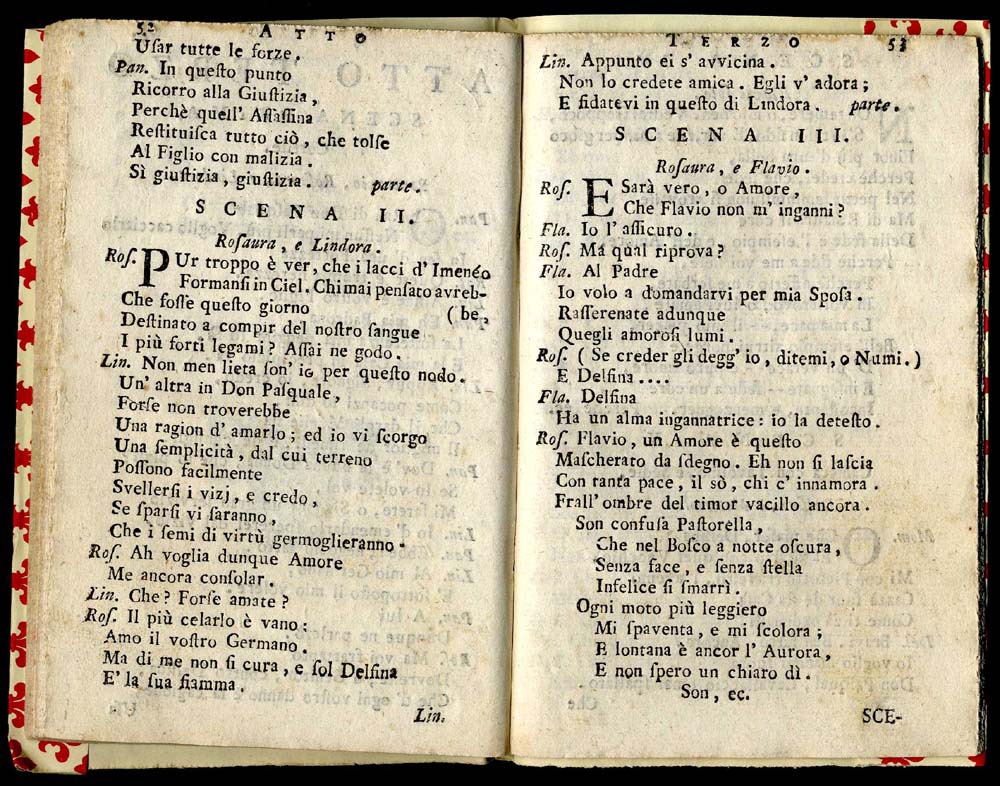 52 ATTO
Uſar tutte le forze.
Pan. In queſto punto
Ricorro alla Giuſtizia,
Perchè quell' Aſſaſſina
Reſtituiſca tutto ciò, che tolſe
Al Figlio con malizia.
Sì giuſtizia, giuſtizia. parte.
SCENA II.
Roſaura, e Lindora.
Roſ. PUr troppo è ver, che i lacci d' Imenéo
Formanſi in Ciel. Chi mai penſato avreb-
Che foſſe queſto giorno (be,
Deſtinato a compir del noſtro ſangue
I più forti legami? Aſſai ne godo.
Lin. Non men lieta ſon' io per queſto nodo.
Un' altra in Don Paſquale,
Forſe non troverebbe
Una ragion d' amarlo; ed io vi ſcorgo
Una ſemplicità, dal cui terreno
Poſſono facilmente
Svellerſi i vizj, e credo,
Se ſparſi vi ſaranno,
Che i ſemi di virtù germoglieranno.
Roſ. Ah voglia dunque Amore
Me ancora conſolar.
Lin. Che? Forſe amate?
Roſ. Il più celarlo è vano:
Amo il voſtro Germano.
Ma di me non ſi cura, e ſol Delfina
E' la ſua fiamma.
Lin.
TERZO 53
Lin. Appunto ei s' avvicina.
Non lo credete amica. Egli v' adora;
E fidatevi in queſto di Lindora. parte.
SCENA III.
Roſaura, e Flavio.
Roſ. E Sarà vero, o Amore,
Che Flavio non m' inganni?
Fla. Io l' aſſicuro.
Roſ. Ma qual riprova?
Fla. Al Padre
Io volo a domandarvi per mia Spoſa.
Raſſerenate adunque
Quegli amoroſi lumi.
Roſ. (Se creder gli degg' io, ditemi, o Numi.)
E Delfina....
Fla. Delfina
Ha un alma ingannatrice: io la deteſto.
Roſ. Flavio, un Amore è queſto
Maſcherato da ſdegno. Eh non ſi laſcia
Con tanta pace, il sò, chi c' innamora.
Frall' ombre del timor vacillo ancora.
Son confuſa Paſtorella,
Che nel Boſco a notte oſcura,
Senza face, e ſenza ſtella
Infelice ſi ſmarrì.
Ogni moto più leggiero
Mi ſpaventa, e mi ſcolora;
E lontana è ancor l' Aurora,
E non ſpero un chiaro dì.
Son, ec.
SCE-